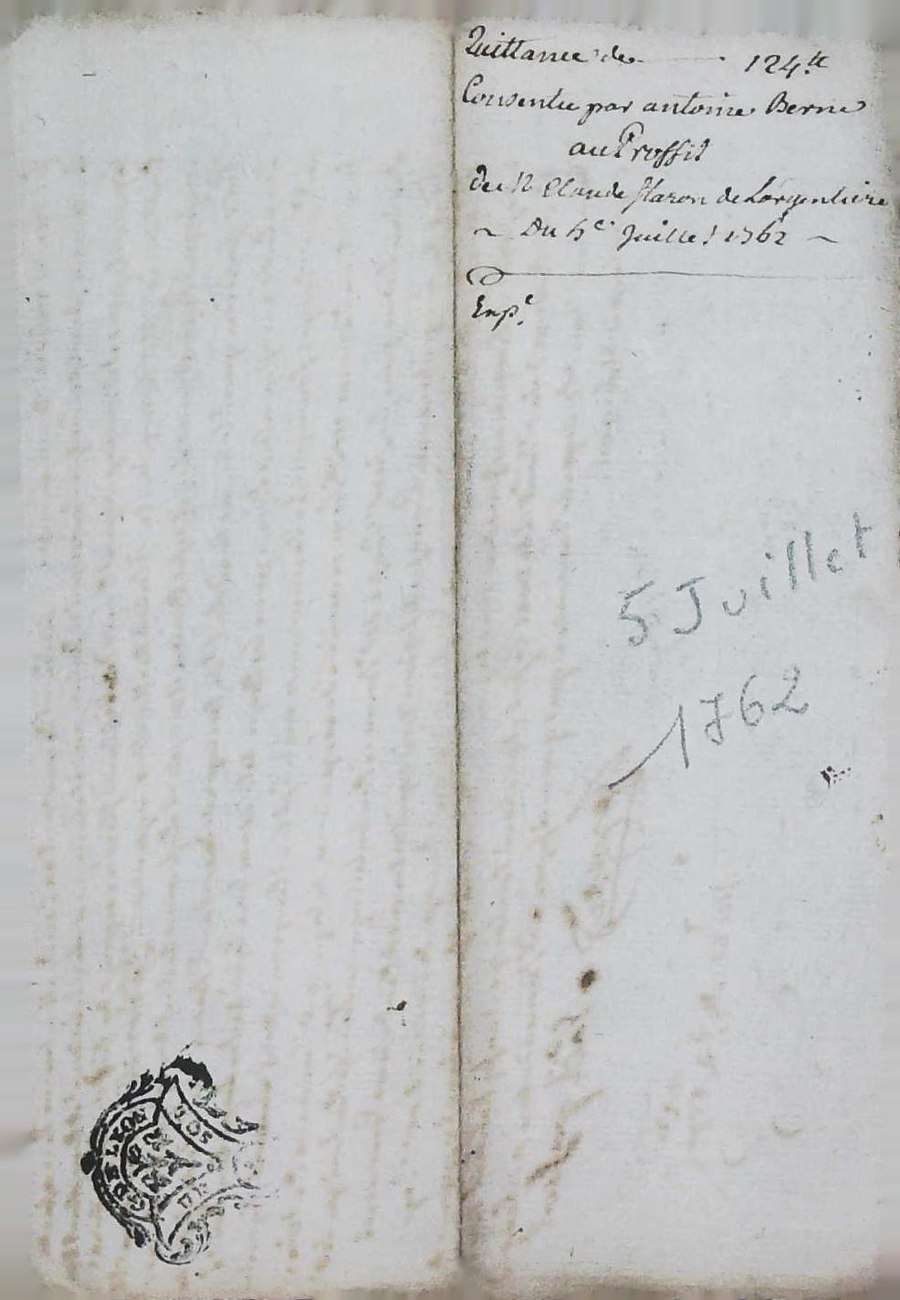 Quittance de 124.tt
Consentie par antoine Berne
au Proffit
du Sr Claude flaron de Largentiere
~ Du 5e Juillet 1762 ~
Exp.e
5 Juillet
1762
G DE LYON
2 DS
DE